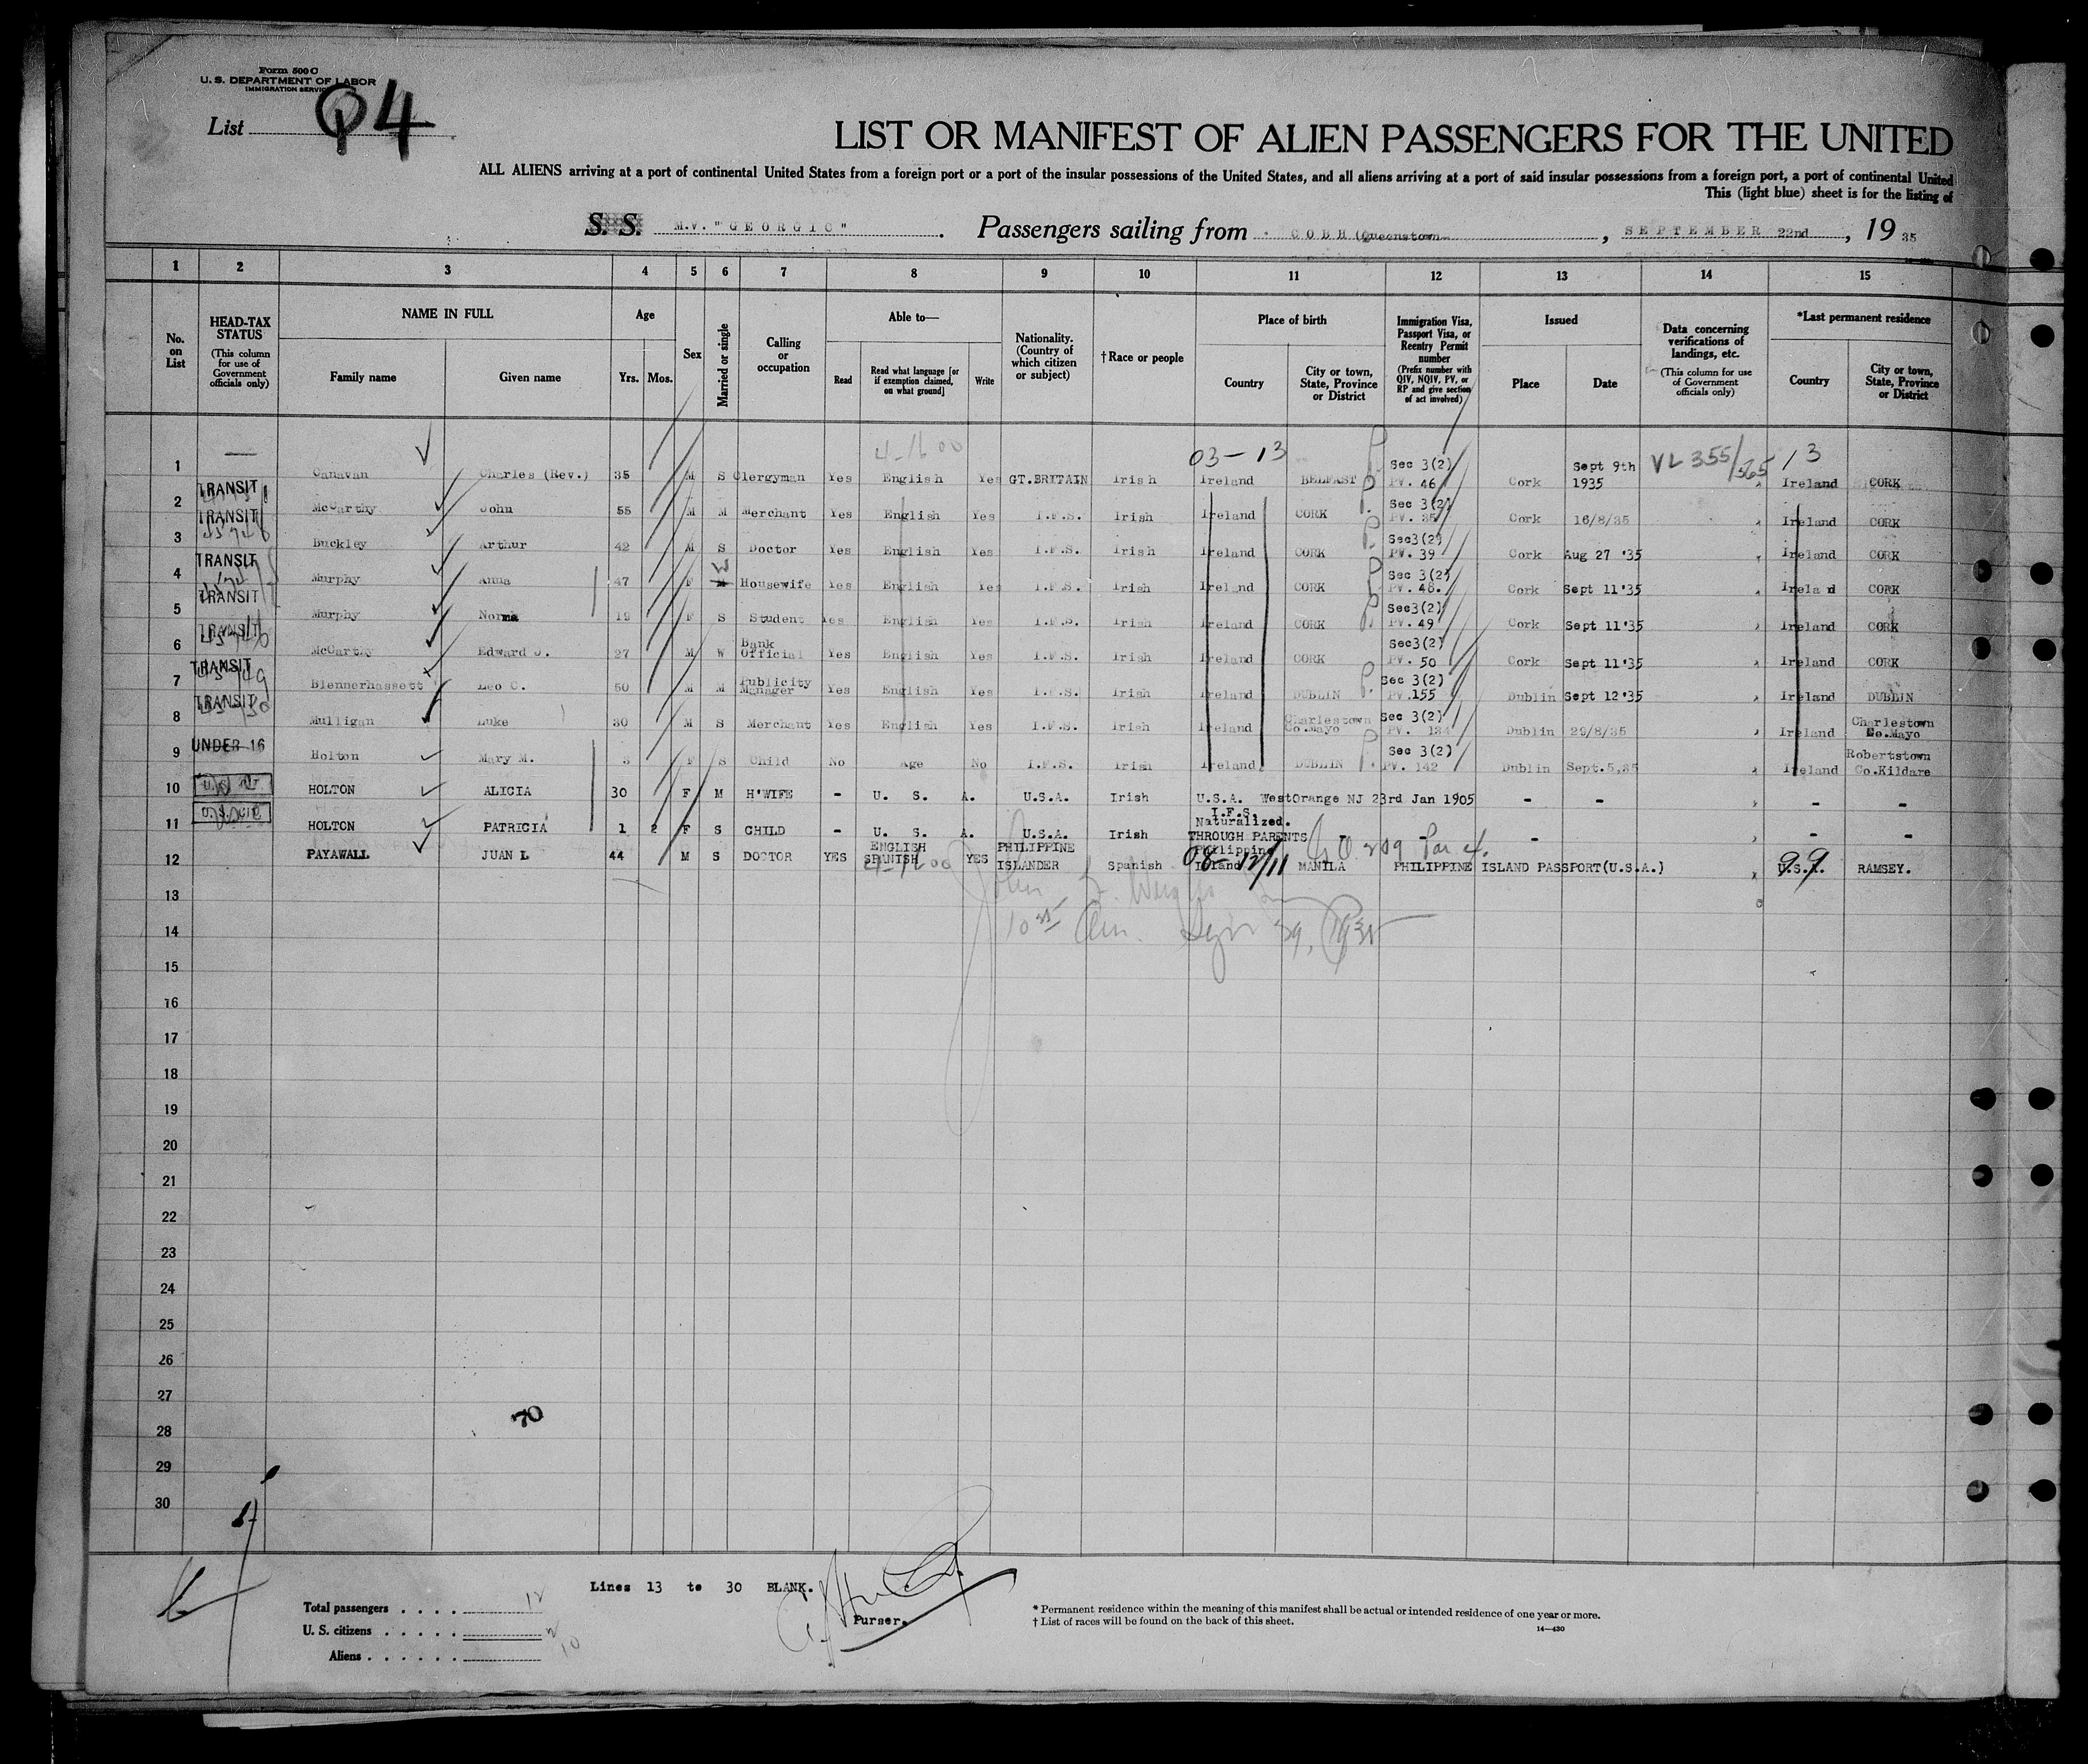 Form 500 C
U. S. DEPARTMENT OF LABOR
IMMIGRATION SERVICE
List Q4
LIST OR MANIFEST OF ALIEN PASSENGERS FOR THE UNITED
ALL ALIENS arriving at a port of continental United States from a foreign port or a port of the insular possessions of the United States, and all aliens arriving at a port of said insular possessions from a foreign port, a port of continental United
This (light blue) sheet is for the listing of
S. S. M.V. "GEORGIC". Passengers sailing from COBH (Queenstown, SEPTEMBER 22nd, 1935
1 2 3 4 5 6 7 8 9 10 11 12 13 14 15
No. on List
HEAD-TAX STATUS (This column for use of Government officials only)
NAME IN FULL Family name Given name
Age Yrs. Mos.
Sex
Married or single
Calling or occupation
Able to— Read Read what language [or if exemption claimed, on what ground] Write
Nationality. (Country of which citizen or subject)
† Race or people
Place of birth Country City or town, State, Province or District
Immigration Visa, Passport Visa, or Reentry Permit number (Prefix number with QIV, NQIV, PV, or RP and give section of act involved)
Issued Place Date
Data concerning verifications of landings, etc. (This column for use of Government officials only)
*Last permanent residence Country City or town, State, Province or District
4-1600 03-13 VL 355/565 13
1 Canavan Charles (Rev.) 35 M S Clergyman Yes English Yes GT.BRITAIN Irish Ireland BELFAST Sec 3(2) PV. 46 Cork Sept 9th 1935 Ireland CORK
2 TRANSIT McCarthy John 55 M M Merchant Yes English Yes I.F.S. Irish Ireland CORK Sec 3(2) PV. 35 Cork 16/8/35 Ireland CORK
3 TRANSIT Buckley Arthur 42 M S Doctor Yes English Yes I.F.S. Irish Ireland CORK Sec3(2) PV. 39 Cork Aug 27 '35 Ireland CORK
4 TRANSIT Murphy Anna 47 F W Housewife Yes English Yes I.F.S. Irish Ireland CORK Sec 3(2) PV. 48. Cork Sept 11'35 Ireland CORK
5 TRANSIT Murphy Norma 19 F S Student Yes English Yes I.F.S. Irish Ireland CORK Sec3(2) PV. 49 Cork Sept 11'35 Ireland CORK
6 TRANSIT McCarthy Edward J. 27 M W Bank Official Yes English Yes I.F.S. Irish Ireland CORK Sec3(2) PV. 50 Cork Sept 11'35 Ireland CORK
7 TRANSIT Blennerhassett Leo C. 50 M M Publicity Manager Yes English Yes I.F.S. Irish Ireland DUBLIN Sec 3(2) PV.155 Dublin Sept 12'35 Ireland DUBLIN
8 TRANSIT Mulligan Luke 30 M S Merchant Yes English Yes I.F.S. Irish Ireland Charlestown Co.Mayo Sec 3(2) PV. 134 Dublin 29/8/35 Ireland Charlestown Co.Mayo
9 UNDER 16 Holton Mary M. 3 F S Child No Age No I.F.S. Irish Ireland DUBLIN Sec 3(2) PV. 142 Dublin Sept.5,35 Ireland Robertstown Co.Kildare
10 U.S. CIT HOLTON ALICIA 30 F M H'WIFE - U. S. A. U.S.A. Irish U.S.A. WestOrange NJ 23rd Jan 1905 - - - -
11 U.S. CIT HOLTON PATRICIA 1 2 F S CHILD - U. S. A. U.S.A. Irish I.F.S. Naturalized. THROUGH PARENTS - - - - -
12 PAYAWALL JUAN L 44 M S DOCTOR YES ENGLISH SPANISH YES PHILIPPINE ISLANDER Spanish Philippine Island MANILA PHILIPPINE ISLAND PASSPORT(U.S.A.) U.S.A. RAMSEY.
13
14
15
16
17
18
19
20
21
22
23
24
25
26
27
70
28
29
30
Lines 13 to 30 BLANK.
Purser.
Total passengers 12
U. S. citizens 2
Aliens 10
* Permanent residence within the meaning of this manifest shall be actual or intended residence of one year or more.
† List of races will be found on the back of this sheet.
14—430